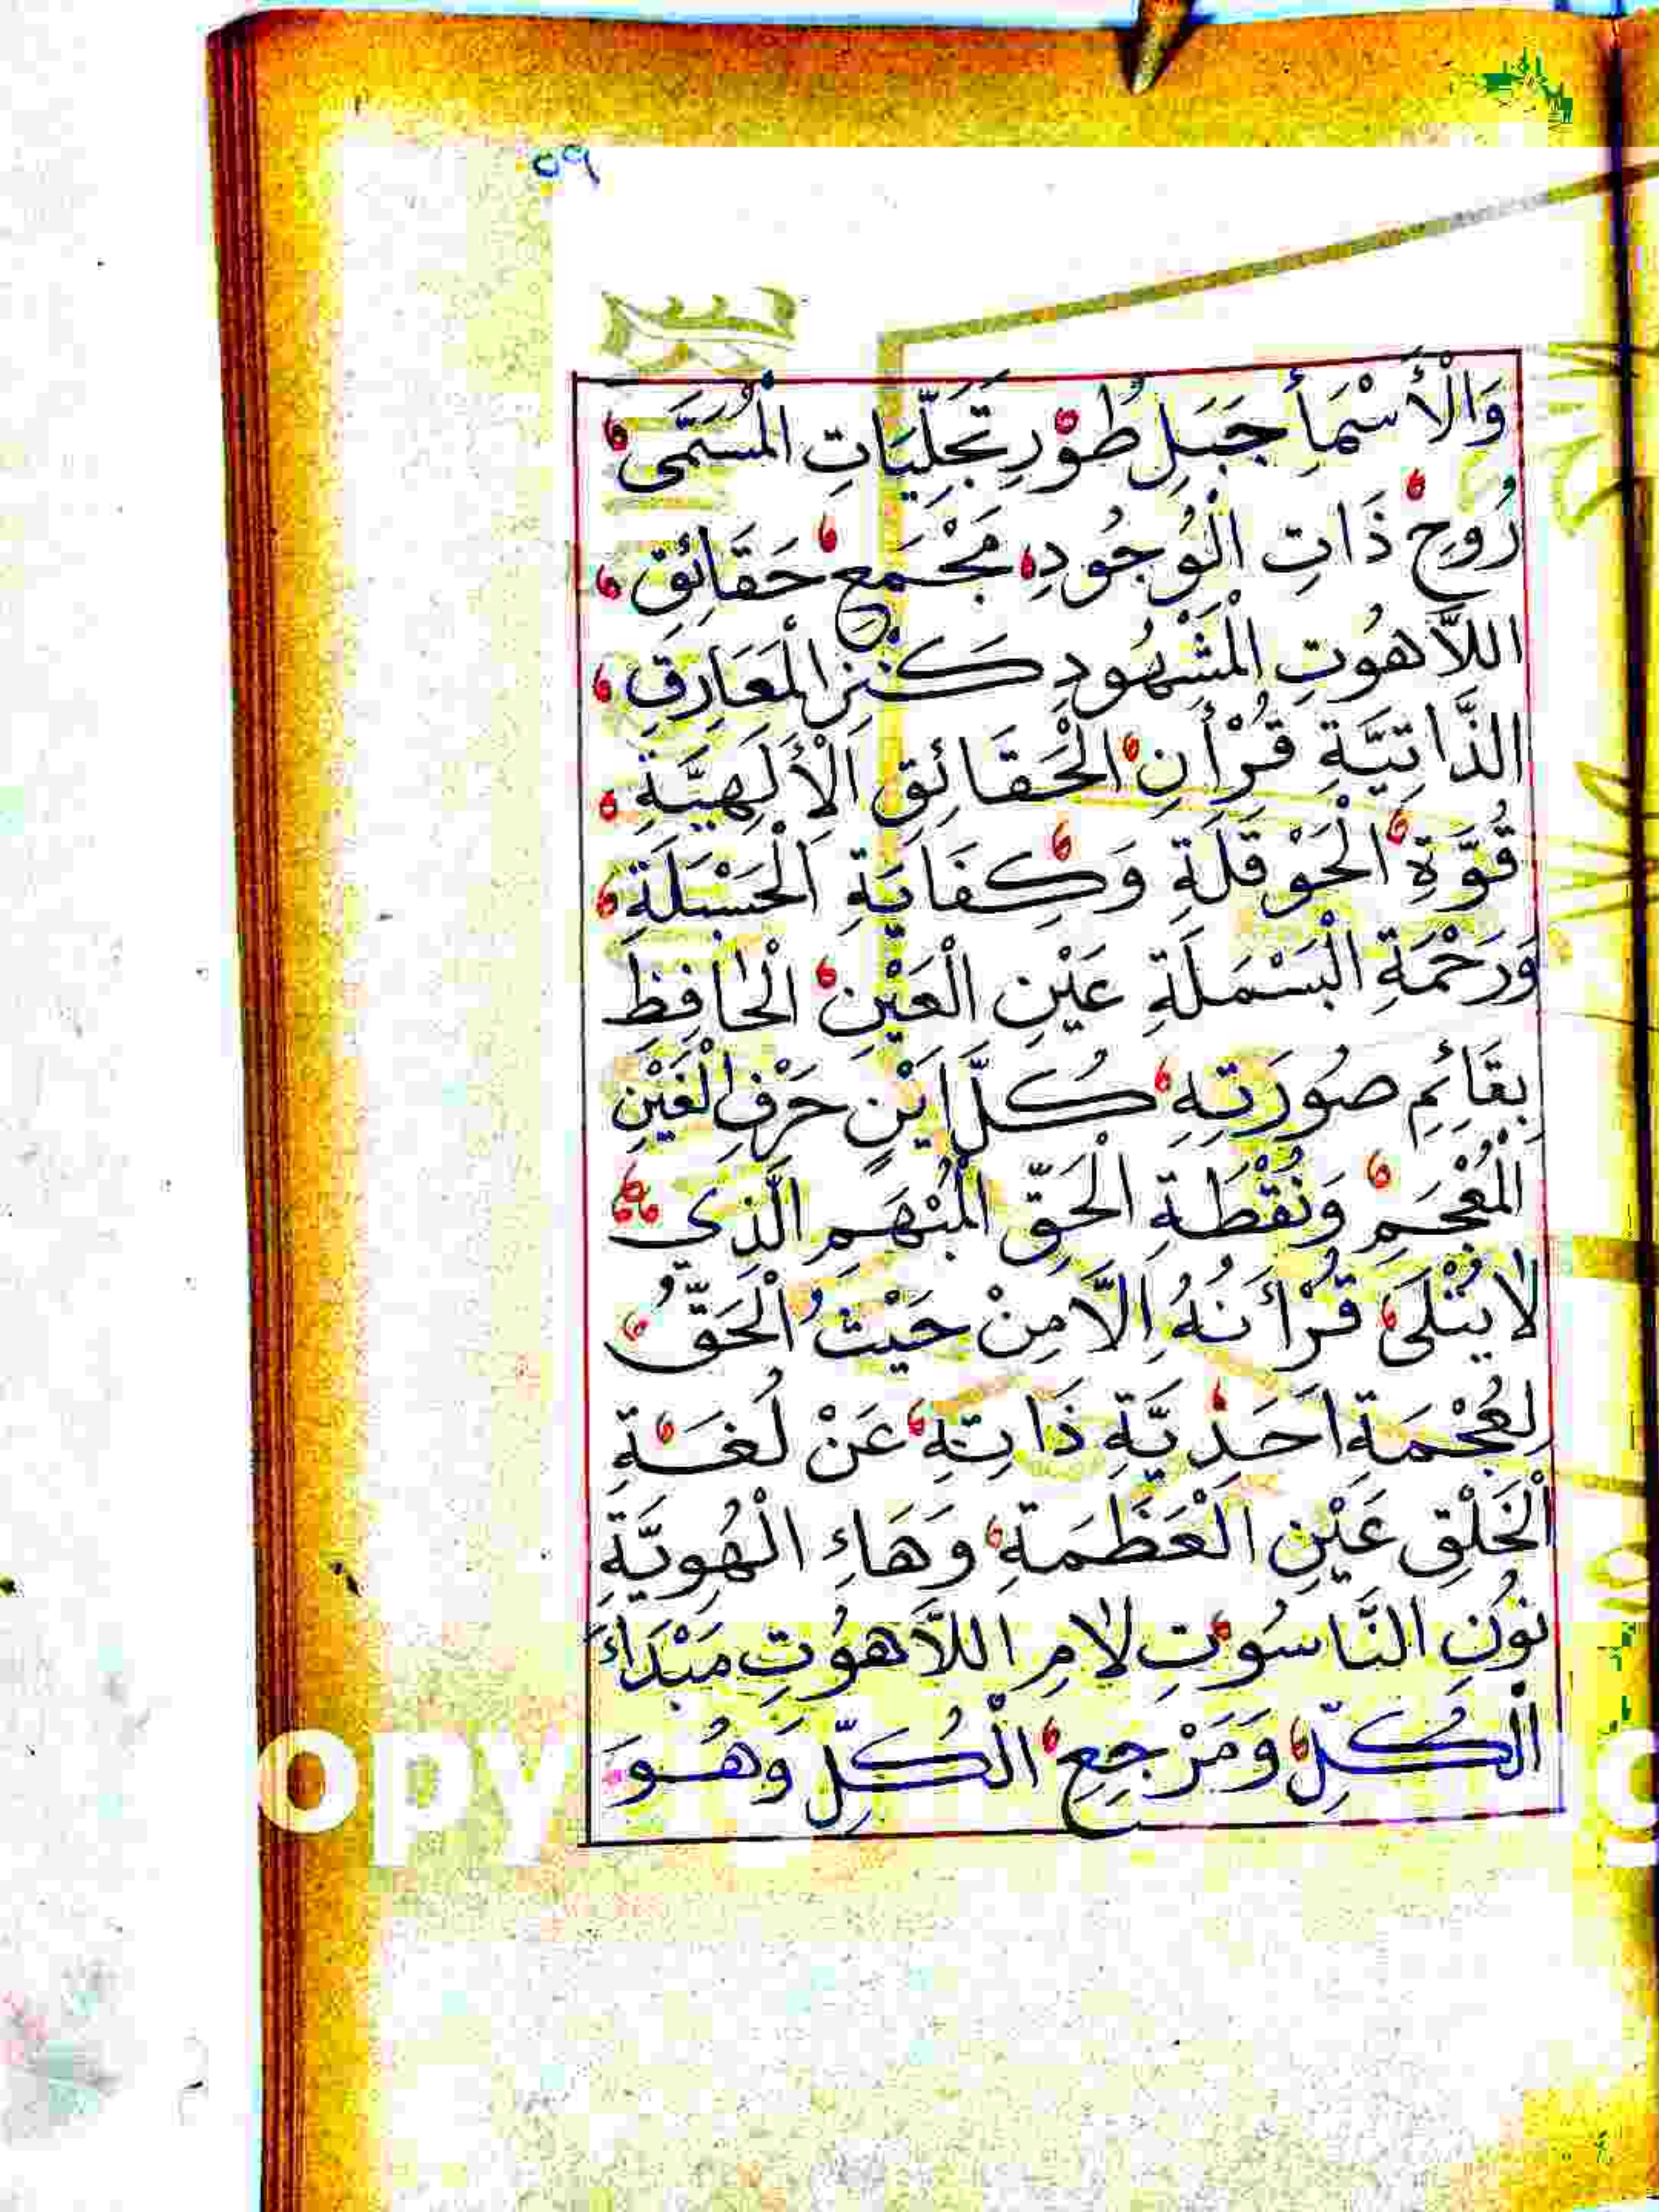 ٥٩
وَالْأَسْمَأِ جَبَلِ طُوْرِ تَجَلِّيَاتِ الْمُسَمَّى
رُوحِ ذَاتِ الْوُجُودِ مَجْمَعِ حَقَائِقِ
اللَّاهُوتِ الْمَشْهُودِ كَنْزِ الْمَعَارِفِ
الذَّاتِيَّةِ قُرْأَنِ الْحَقَائِقِ الْأَلَهِيَّةِ
قُوَّةِ الْحَوْقَلَةِ وَكِفَايَةِ الْحَسْبَلَةِ
وَرَحْمَةِ الْبَسْمَلَةِ عَيْنِ الْعَيْنِ الْحَافِظِ
بِقَائِمِ صُورَتِهِ كُلَّ اَيْنٍ حَرْفِ الْغَيْنِ
الْمُعْجَمِ وَنُقْطَةِ الْحَقِّ الْمُبْهَمِ الَّذِى
لَا يُتْلَى قُرْأَنُهُ اِلَّا مِنْ حَيْثُ الْحَقُّ
لِعُجْمَةِ اَحَدِيَّةِ ذَاتِهِ عَنْ لُغَةِ
الْخَلْقِ عَيْنِ الْعَظَمَةِ وَهَاءِ الْهُوِيَّةِ
نُونِ النَّاسُوتِ لَامِ اللَّاهُوتِ مَبْدَاءِ
الْكُلِّ وَمَرْجِعِ الْكُلِّ وَهُوَ
OPY